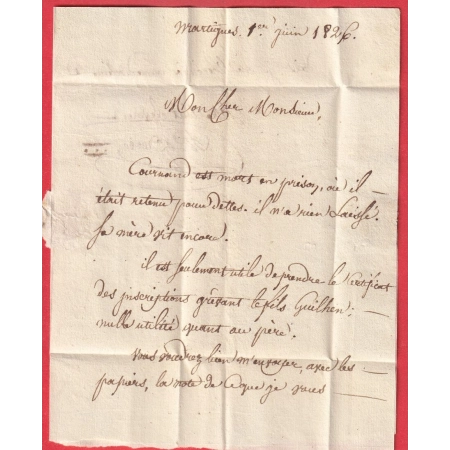 Martigues 1er juin 1826.
Mon Cher Monsieur,
Cournand est mort en prison, où il
était retenu pour dettes. il n'a rien laissé.
Sa mère vit encore.
il est seulement utile de prendre le certificat
des inscriptions grévant le fils Guilhen;
nulle utilité quant au père.
Vous voudrez bien m'envoyer, avec les
papiers, la note de ce que je vous